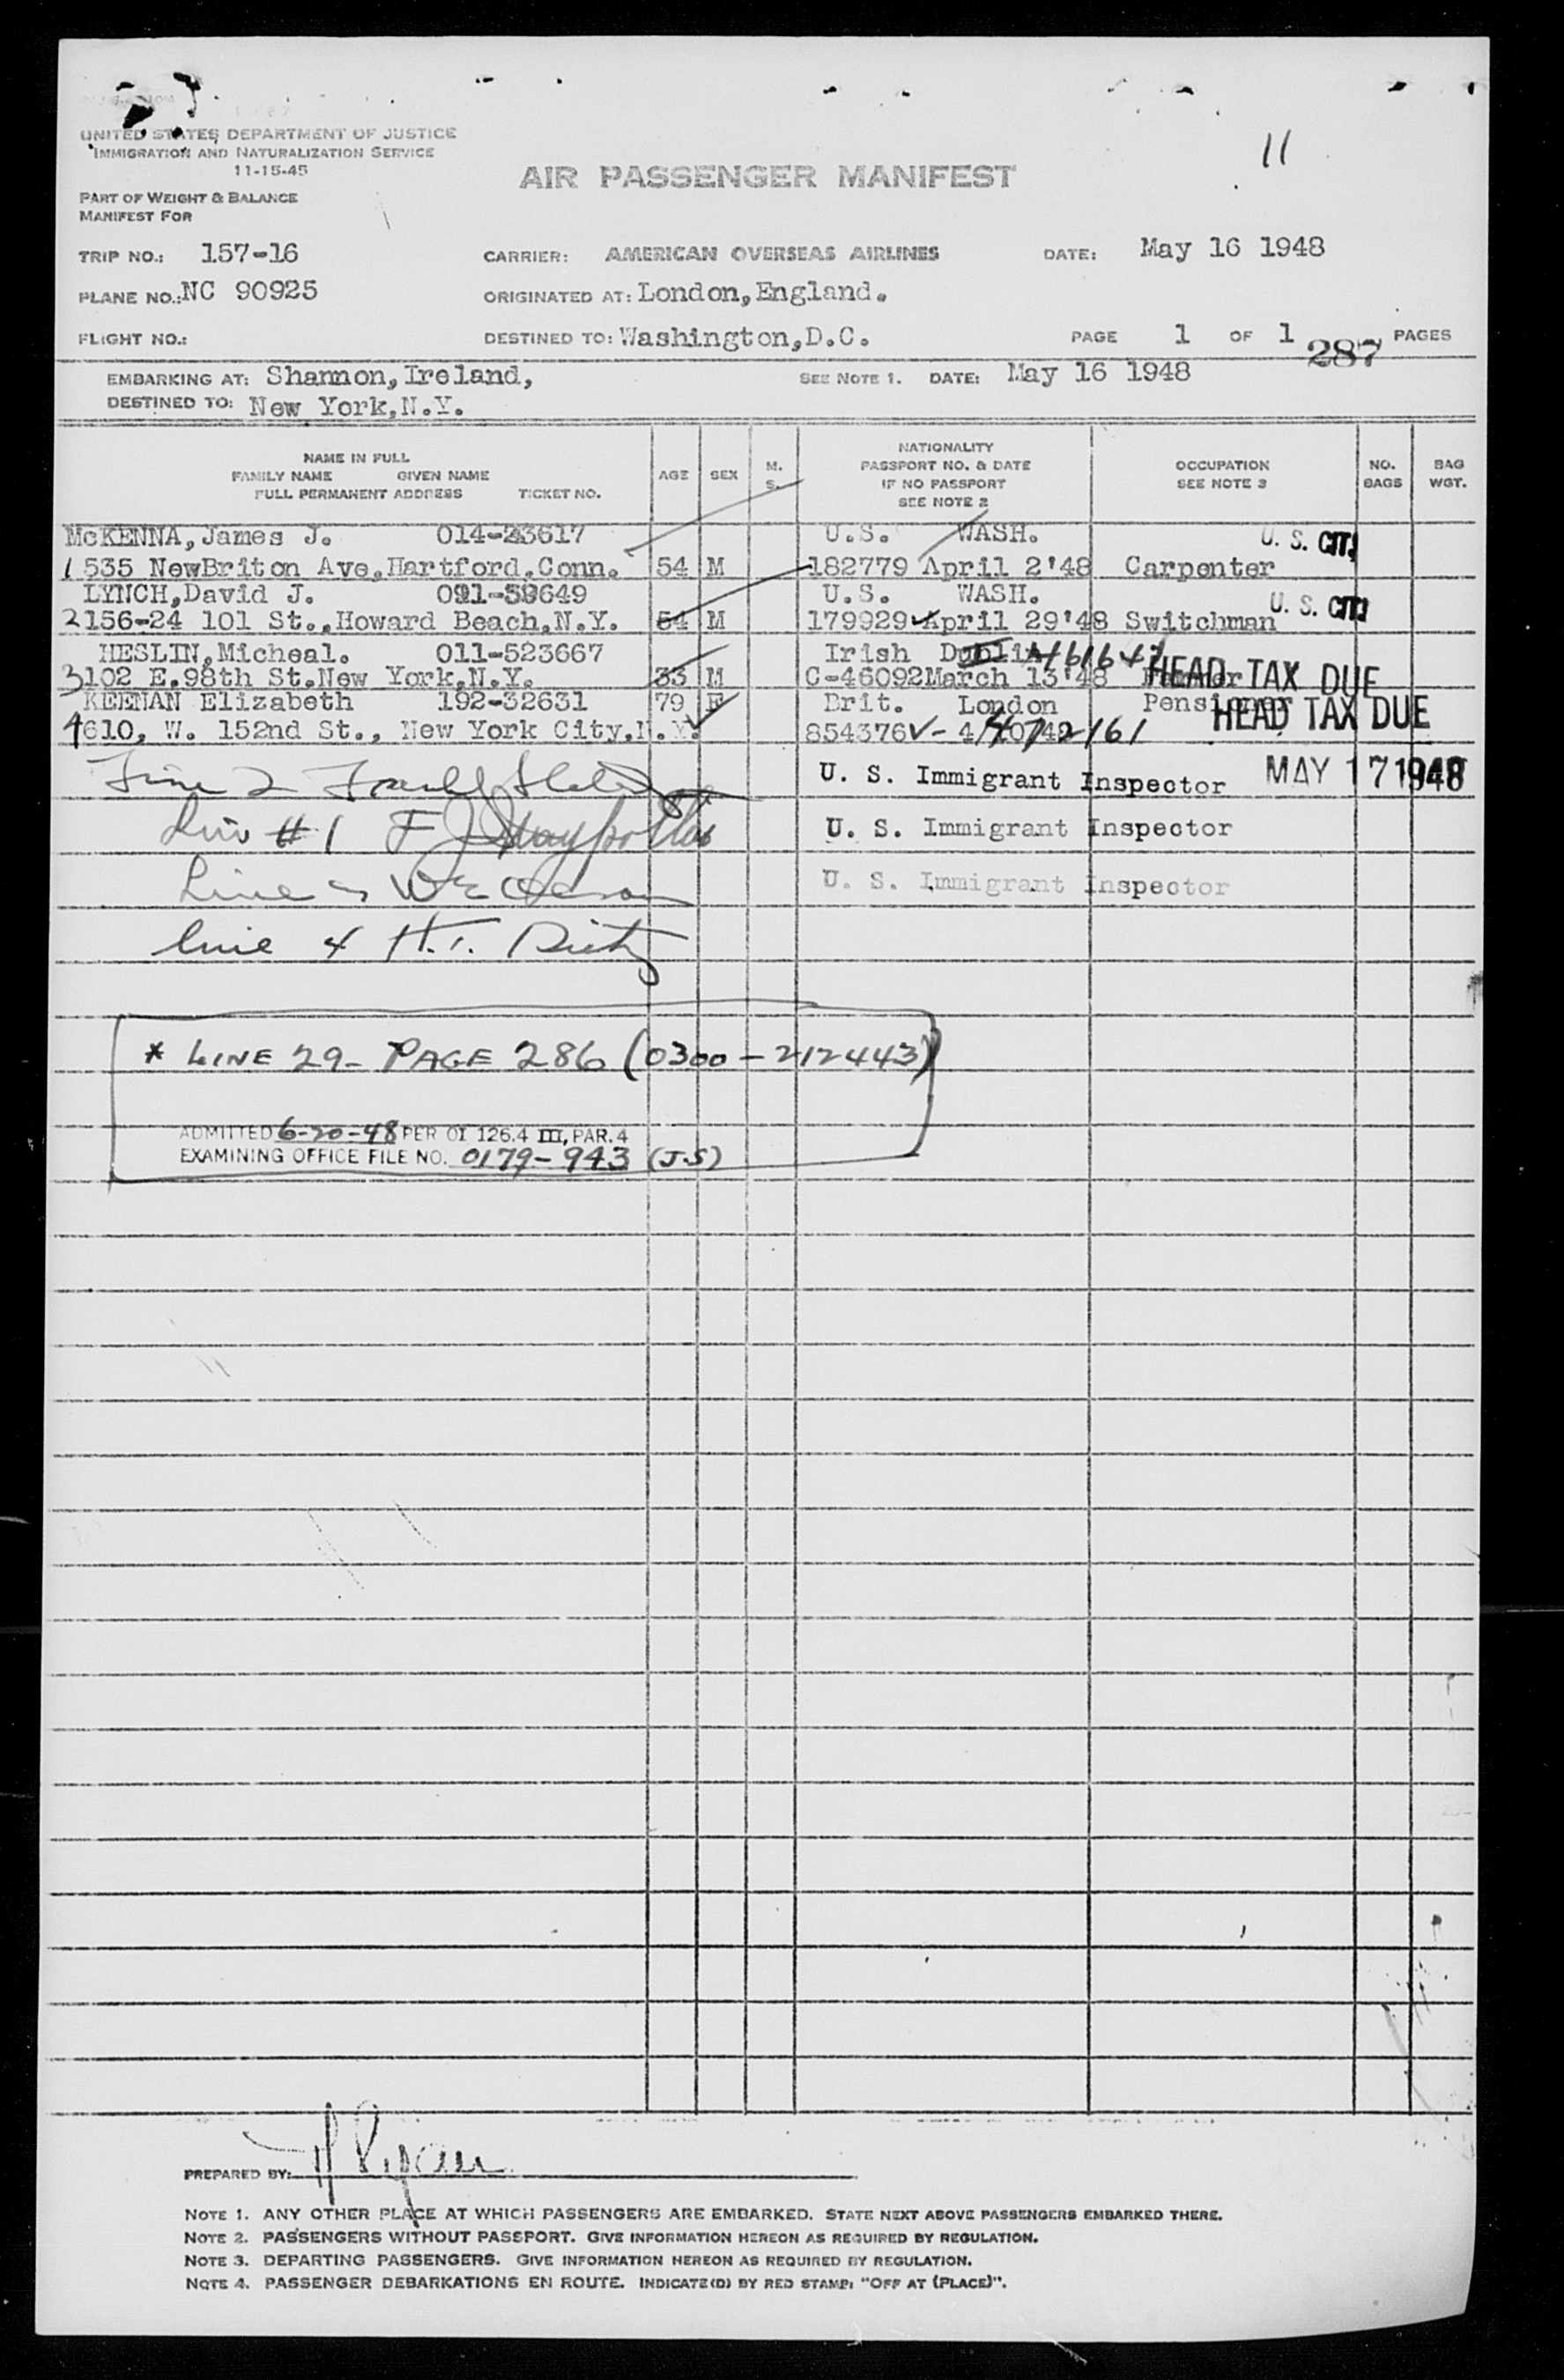 UNITED STATES DEPARTMENT OF JUSTICE
IMMIGRATION AND NATURALIZATION SERVICE
11-15-45
11
AIR PASSENGER MANIFEST
PART OF WEIGHT & BALANCE
MANIFEST FOR
TRIP NO.: 157-16 CARRIER: AMERICAN OVERSEAS AIRLINES DATE: May 16 1948
PLANE NO.: NC 90925 ORIGINATED AT: London, England.
FLIGHT NO.: DESTINED TO: Washington, D.C. PAGE 1 OF 1 PAGES
287
EMBARKING AT: Shannon, Ireland, SEE NOTE 1. DATE: May 16 1948
DESTINED TO: New York, N.Y.
NAME IN FULL
FAMILY NAME GIVEN NAME
FULL PERMANENT ADDRESS TICKET NO. AGE SEX M. S. NATIONALITY
PASSPORT NO. & DATE
IF NO PASSPORT
SEE NOTE 2 OCCUPATION
SEE NOTE 3 NO.
BAGS BAG
WGT.
McKENNA, James J. 014-23617 U.S. WASH. U. S. CIT.
1 535 NewBriton Ave, Hartford, Conn. 54 M 182779 April 2'48 Carpenter
LYNCH, David J. 091-59649 U.S. WASH. U. S. CIT.
2 156-24 101 St., Howard Beach, N.Y. 54 M 179929 April 29'48 Switchman
HESLIN, Micheal. 011-523667 Irish Dublin
3 102 E. 98th St. New York, N.Y. 33 M C-46092 March 13'48 HEAD TAX DUE
KEENAN Elizabeth 192-32631 79 F Brit. London Pensioner HEAD TAX DUE
4 610, W. 152nd St., New York City, N.Y. 854376
Line 2 U. S. Immigrant Inspector MAY 17 1948
Line #1 F J U. S. Immigrant Inspector
Line 3 U. S. Immigrant Inspector
Line 4 H.T.
* LINE 29- PAGE 286 (0300-212443)
ADMITTED 6-20-48 PER OI 126.4 III, PAR. 4
EXAMINING OFFICE FILE NO. 0179-943 (J.S)
PREPARED BY: Ryan
NOTE 1. ANY OTHER PLACE AT WHICH PASSENGERS ARE EMBARKED. STATE NEXT ABOVE PASSENGERS EMBARKED THERE.
NOTE 2. PASSENGERS WITHOUT PASSPORT. GIVE INFORMATION HEREON AS REQUIRED BY REGULATION.
NOTE 3. DEPARTING PASSENGERS. GIVE INFORMATION HEREON AS REQUIRED BY REGULATION.
NOTE 4. PASSENGER DEBARKATIONS EN ROUTE. INDICATE(D) BY RED STAMP: "OFF AT (PLACE)".